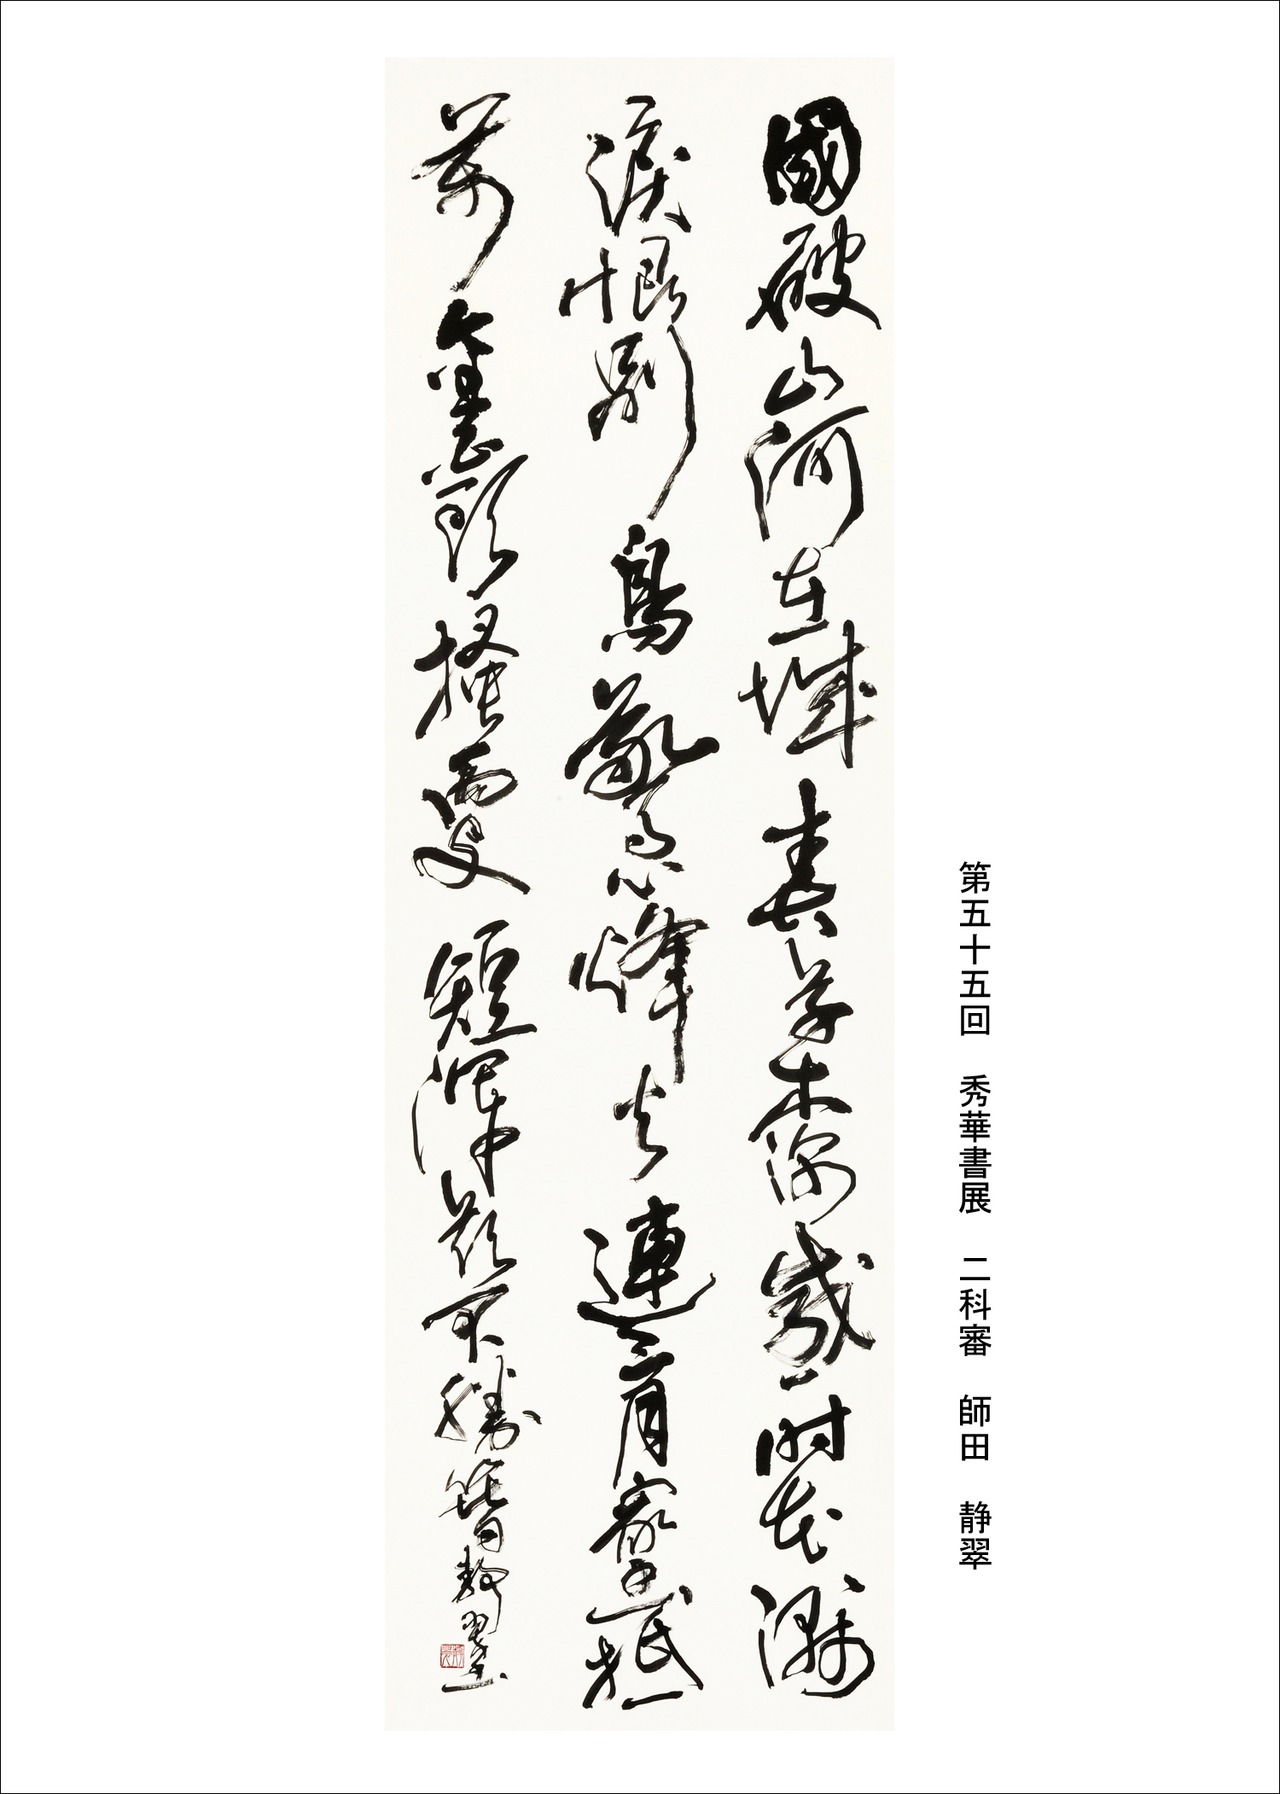 第五十五回　秀華書展　二科審　師田　静翠
國破山河在城春草木深感時花濺
淚恨別鳥驚心烽火連三月家書抵
萬金白頭搔更短渾欲不勝簪 静翠